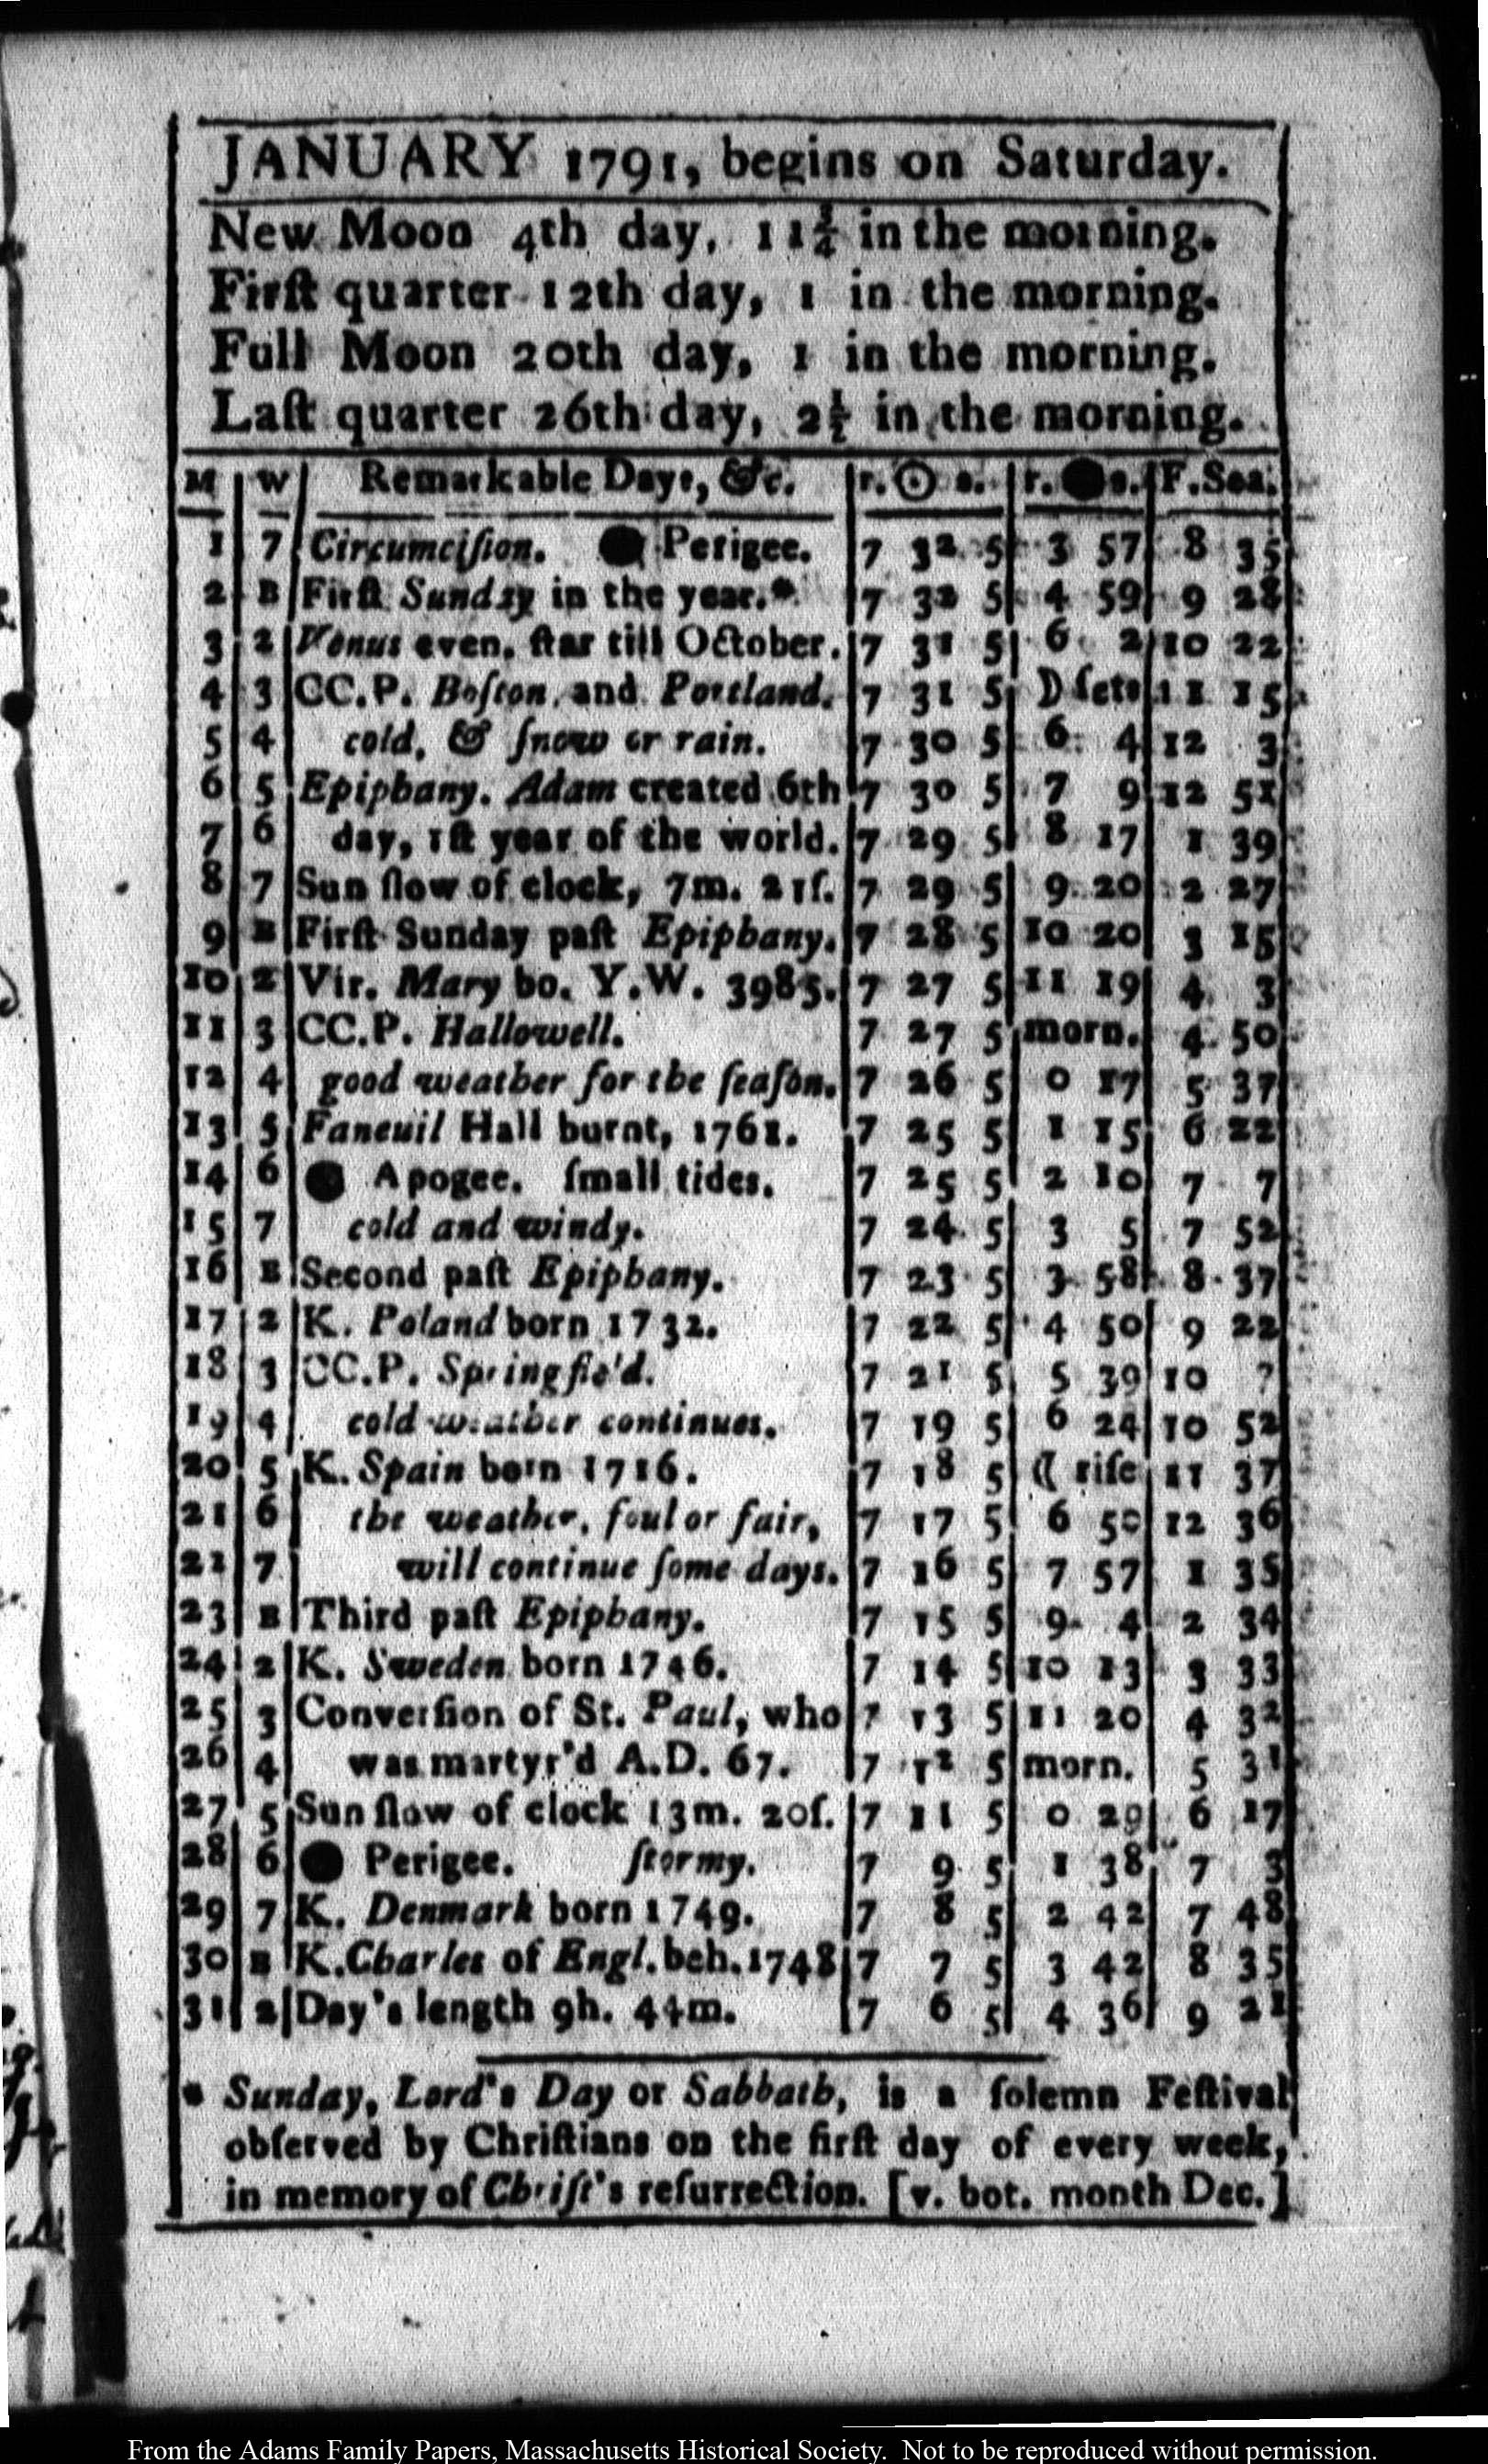 JANUARY 1791, begins on Saturday.
New Moon 4th day, 11¾ in the morning.
Firſt quarter 12th day, 1 in the morning.
Full Moon 20th day, 1 in the morning.
Laſt quarter 26th day, 2½ in the morning.
M W Remarkable Days, &c. r. ☉ s. r. ● s. F. Sea.
1 7 Circumciſion. ● Perigee. 7 32 5 3 57 8 35
2 B Firſt Sunday in the year.* 7 32 5 4 59 9 28
3 2 Venus even. ſtar till October. 7 31 5 6 2 10 22
4 3 CC.P. Boſton, and Portland. 7 31 5 ☽ ſets 11 15
5 4 cold, & ſnow or rain. 7 30 5 6 4 12 3
6 5 Epiphany. Adam created 6th 7 30 5 7 9 12 51
7 6 day, 1ſt year of the world. 7 29 5 8 17 1 39
8 7 Sun ſlow of clock, 7m. 21ſ. 7 29 5 9 20 2 27
9 B Firſt Sunday paſt Epiphany. 7 28 5 10 20 3 15
10 2 Vir. Mary bo. Y.W. 3985. 7 27 5 11 19 4 3
11 3 CC.P. Hallowell. 7 27 5 morn. 4 50
12 4 good weather for the ſeaſon. 7 26 5 0 17 5 37
13 5 Faneuil Hall burnt, 1761. 7 25 5 1 15 6 22
14 6 ● Apogee. ſmall tides. 7 25 5 2 10 7 7
15 7 cold and windy. 7 24 5 3 5 7 52
16 B Second paſt Epiphany. 7 23 5 3 58 8 37
17 2 K. Poland born 1732. 7 22 5 4 50 9 22
18 3 CC.P. Springfie'd. 7 21 5 5 39 10 7
19 4 cold weather continues. 7 19 5 6 24 10 52
20 5 K. Spain born 1716. 7 18 5 ☾ riſe 11 37
21 6 the weather, foul or fair, 7 17 5 6 50 12 36
22 7 will continue ſome days. 7 16 5 7 57 1 35
23 B Third paſt Epiphany. 7 15 5 9 4 2 34
24 2 K. Sweden born 1746. 7 14 5 10 13 3 33
25 3 Converſion of St. Paul, who 7 13 5 11 20 4 32
26 4 was martyr'd A.D. 67. 7 12 5 morn. 5 31
27 5 Sun ſlow of clock 13m. 20ſ. 7 11 5 0 29 6 17
28 6 ● Perigee. ſtormy. 7 9 5 1 38 7 3
29 7 K. Denmark born 1749. 7 8 5 2 42 7 48
30 B K. Charles of Engl. beh. 1748 7 7 5 3 42 8 35
31 2 Day's length 9h. 44m. 7 6 5 4 36 9 21
* Sunday, Lord's Day or Sabbath, is a ſolemn Feſtival
obſerved by Chriſtians on the firſt day of every week,
in memory of Chriſt's reſurrection. [v. bot. month Dec.]
From the Adams Family Papers, Massachusetts Historical Society. Not to be reproduced without permission.